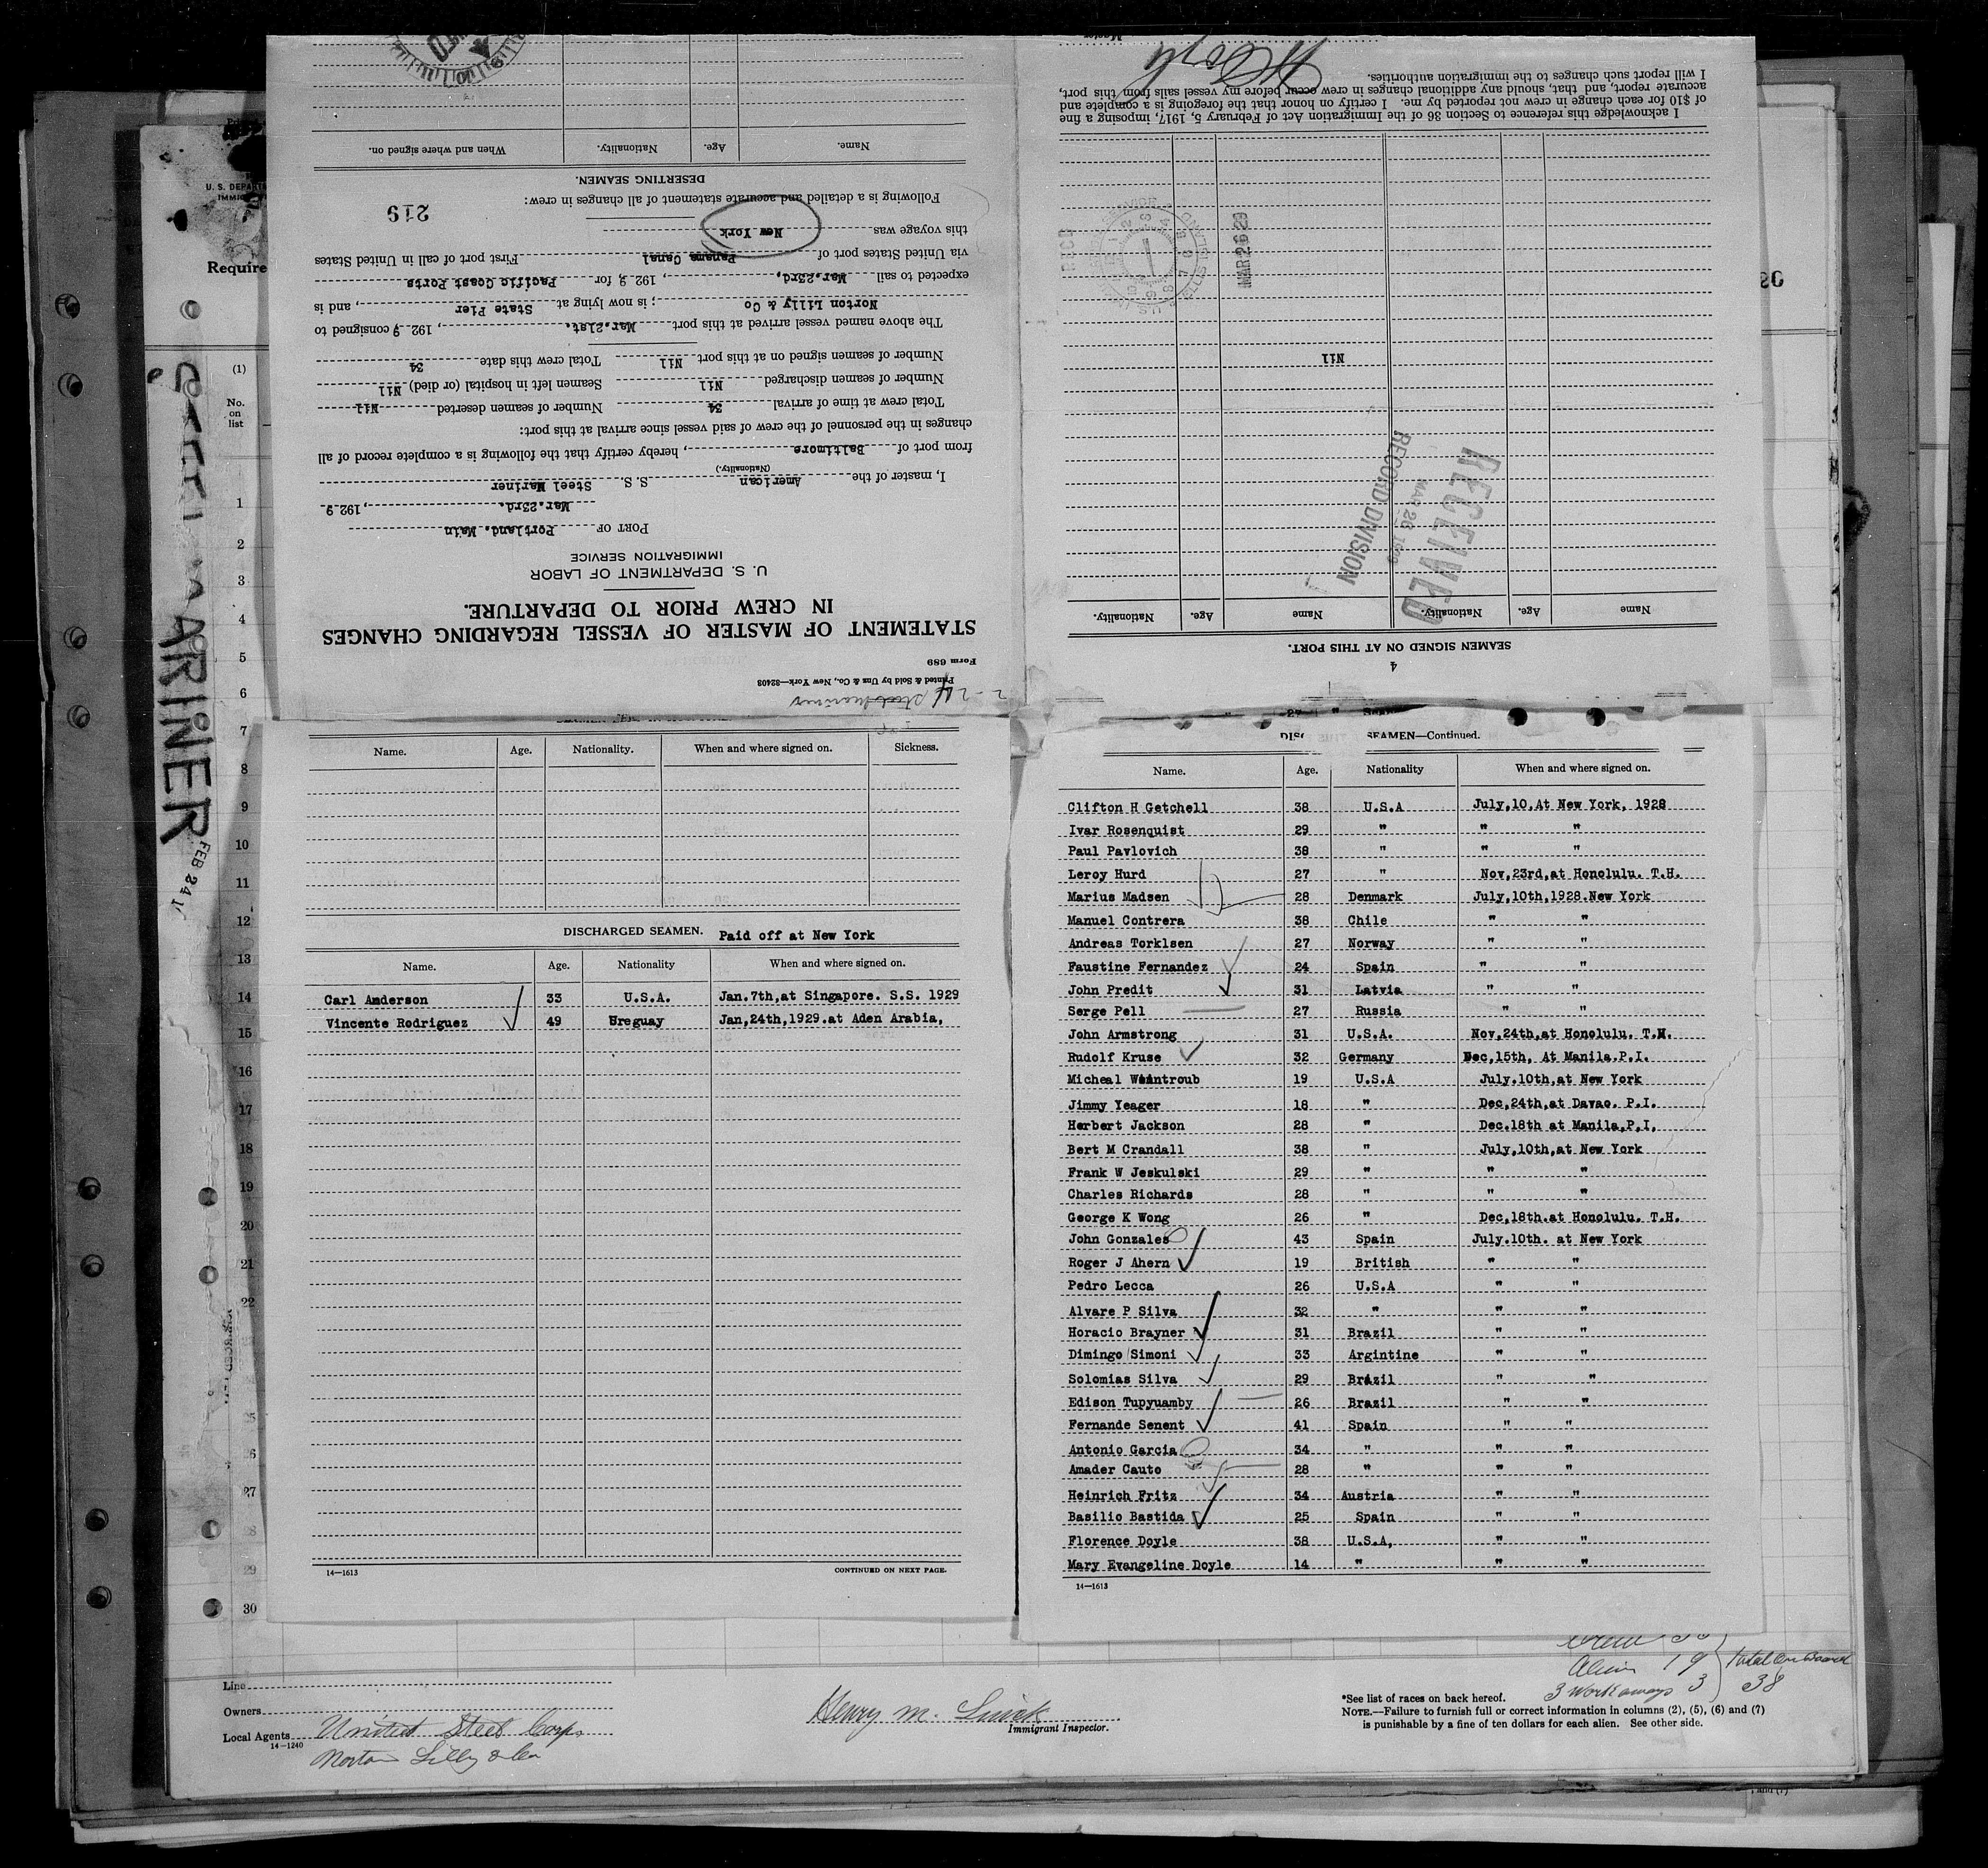 STATEMENT OF MASTER OF VESSEL REGARDING CHANGES
IN CREW PRIOR TO DEPARTURE.
Form 689
Printed & Sold by Unz & Co., New York—32408
U. S. DEPARTMENT OF LABOR
IMMIGRATION SERVICE
PORT OF Portland. Main
Mar.23rd. , 192 9
I, master of the American S. S. Steel Mariner
(Nationality.)
from port of Baltimore , hereby certify that the following is a complete record of all
changes in the personnel of the crew of said vessel since arrival at this port:
Total crew at time of arrival 34 Number of seamen deserted Nil
Number of seamen discharged Nil Seamen left in hospital (or died) Nil
Number of seamen signed on at this port Nil Total crew this date 34
The above named vessel arrived at this port Mar.21st. , 192 9 consigned to
Norton Lilly & Co ; is now lying at State Pier , and is
expected to sail Mar.23rd, , 192 9 for Pacific Coast Ports
via United States port of Panama Canal First port of call in United States
this voyage was New York
Following is a detailed and accurate statement of all changes in crew:
219
DESERTING SEAMEN.
Name. Age. Nationality. When and where signed on.
4
SEAMEN SIGNED ON AT THIS PORT.
Name Age. Nationality. Name Age. Nationality.
RECEIVED
MAR 26
RECORD DIVISION
Nil
MAR 26 29
I acknowledge this reference to Section 36 of the Immigration Act of February 5, 1917, imposing a fine
of $10 for each change in crew not reported by me. I certify on honor that the foregoing is a complete and
accurate report, and that, should any additional changes in crew occur before my vessel sails from this port,
I will report such changes to the immigration authorities.
Master
U. S. DEPARTM
IMMIG
Require
(1)
No.
on
list
1
2
3
4
5
6
7
8
9
10
11
12
13
14
15
16
17
18
19
20
21
22
27
28
29
30
MARINER
FEB 24 1
Name. Age. Nationality. When and where signed on. Sickness.
DISCHARGED SEAMEN. Paid off at New York
Name. Age. Nationality When and where signed on.
Carl Anderson 33 U.S.A. Jan.7th,at Singapore. S.S. 1929
Vincente Rodriguez 49 Ureguay Jan,24th,1929.at Aden Arabia,
14—1613 CONTINUED ON NEXT PAGE.
SEAMEN—Continued.
Name. Age. Nationality When and where signed on.
Clifton H Getchell 38 U.S.A July,10,At New York, 1928
Ivar Rosenquist 29 " " "
Paul Pavlovich 38 " " "
Leroy Hurd 27 " Nov,23rd,at Honolulu. T.H.
Marius Madsen 28 Denmark July,10th,1928.New York
Manuel Contrera 38 Chile " "
Andreas Torklsen 27 Norway " "
Faustine Fernandez 24 Spain " "
John Predit 31 Latvia " "
Serge Pell 27 Russia " "
John Armstrong 31 U.S.A. Nov,24th,at Honolulu. T.H.
Rudolf Kruse 32 Germany Dec,15th, At Manila.P.I.
Micheal Weintroub 19 U.S.A July.10th,at New York
Jimmy Yeager 18 " Dec,24th,at Davao. P.I.
Herbert Jackson 28 " Dec.18th at Manila,P.I,
Bert M Crandall 38 " July,10th,at New York
Frank W Jeskulski 29 " " "
Charles Richards 28 " " "
George K Wong 26 " Dec,18th.at Honolulu. T.H.
John Gonzales 43 Spain July.10th. at New York
Roger J Ahern 19 British " "
Pedro Lecca 26 U.S.A " "
Alvare P Silva 32 " " "
Horacio Brayner 31 Brazil " "
Dimingo Simoni 33 Argintine " "
Solomias Silva 29 Brazil " "
Edison Tupyuamby 26 Brazil " "
Fernande Senent 41 Spain " "
Antonio Garcia 34 " " "
Amader Cauto 28 " " "
Heinrich Fritz 34 Austria " "
Basilio Bastida 25 Spain " "
Florence Doyle 38 U.S.A, " "
Mary Evangeline Doyle 14 " " "
14—1613
Line
Owners
Local Agents United Steel Corp.
14—1240
Norton Lilly & Co
Henry M.
Immigrant Inspector.
Alien 19
3 Workaways 3
Total on board
38
*See list of races on back hereof.
NOTE.—Failure to furnish full or correct information in columns (2), (5), (6) and (7)
is punishable by a fine of ten dollars for each alien. See other side.